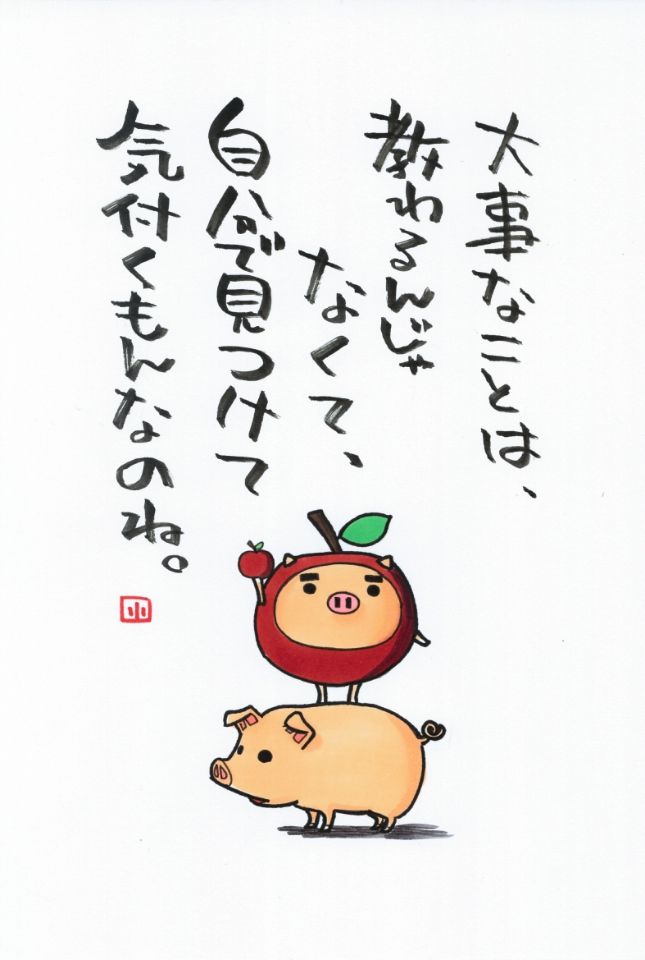 大事なことは、
教わるんじゃ
なくて、
自分で見つけて
気付くもんなのね。
小